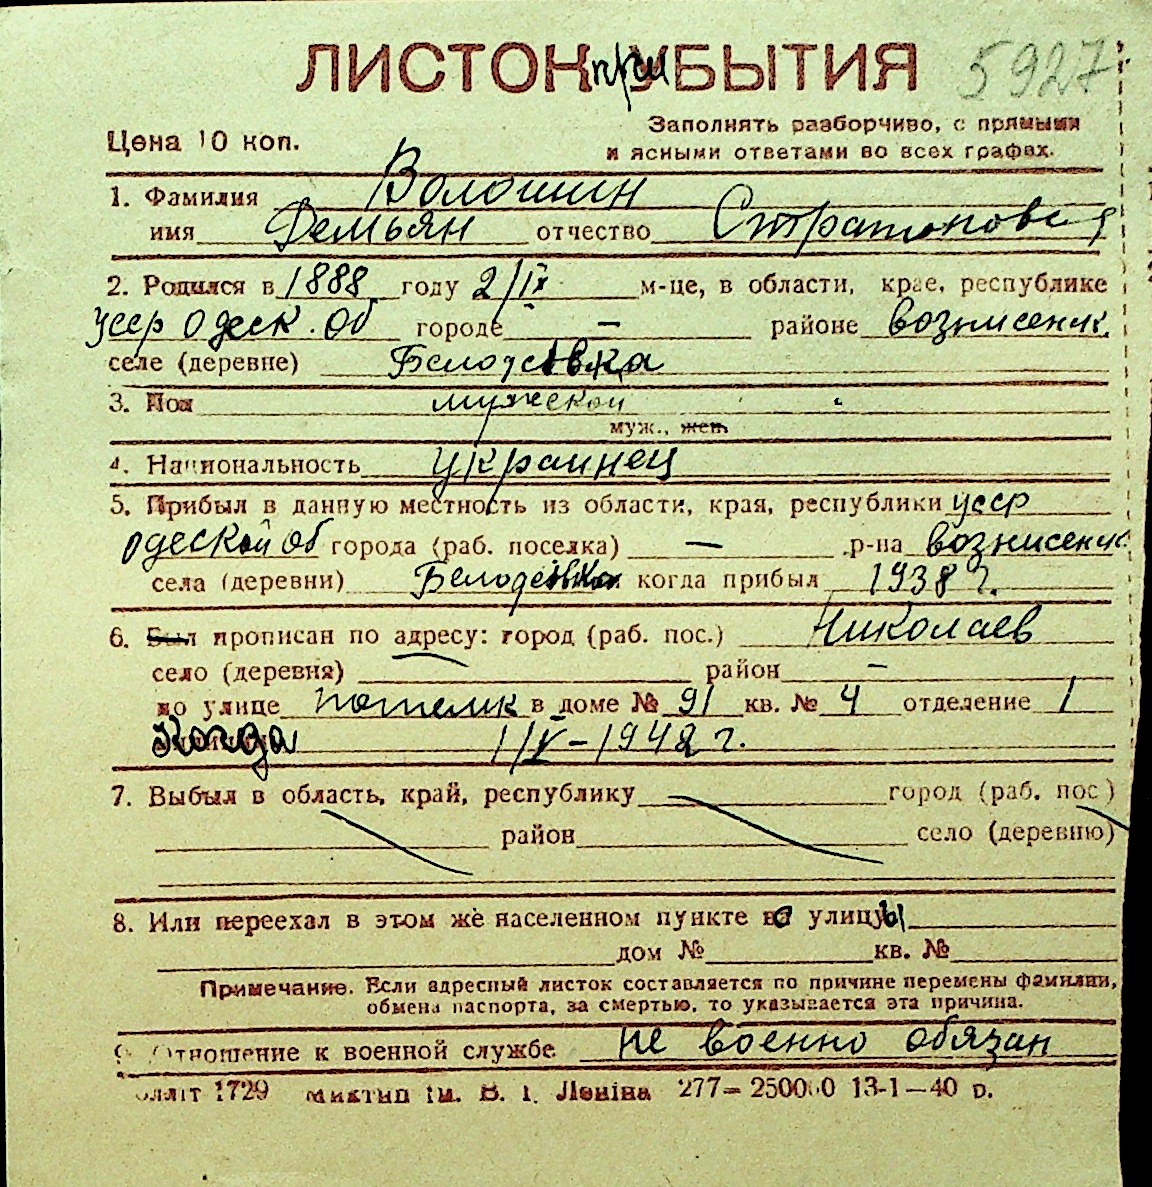 ЛИСТОК при УБЫТИЯ 5927
Цена 10 коп.
Заполнять разборчиво, с прямыми
и ясными ответами во всех графах.
1. Фамилия Волошин
имя Демьян отчество Стратонович
2. Родился в 1888 году 2/IX м-це, в области, крае, республике
усср Одеск. об городе — районе вознисенск.
селе (деревне) Белодевка
3. Пол мужской
муж., жен.
4. Национальность украинец
5. Прибыл в данную местность из области, края, республики усср
одеской об города (раб. поселка) — р-на вознисенск
села (деревни) Белодевка когда прибыл 1938 г.
6. Был прописан по адресу: город (раб. пос.) Николаев
село (деревня) район —
по улице в доме № 91 кв. № 4 отделение 1
Когда 1/V-1942 г.
7. Выбыл в область, край, республику город (раб. пос.)
район село (деревню)
8. Или переехал в этом же населенном пункте с улицы
дом № кв. №
Примечание. Если адресный листок составляется по причине перемены фамилии,
обмена паспорта, за смертью, то указывается эта причина.
9. Отношение к военной службе не военно обязан
1729 ім. В. І. Леніна 277—250000 13-1—40 р.